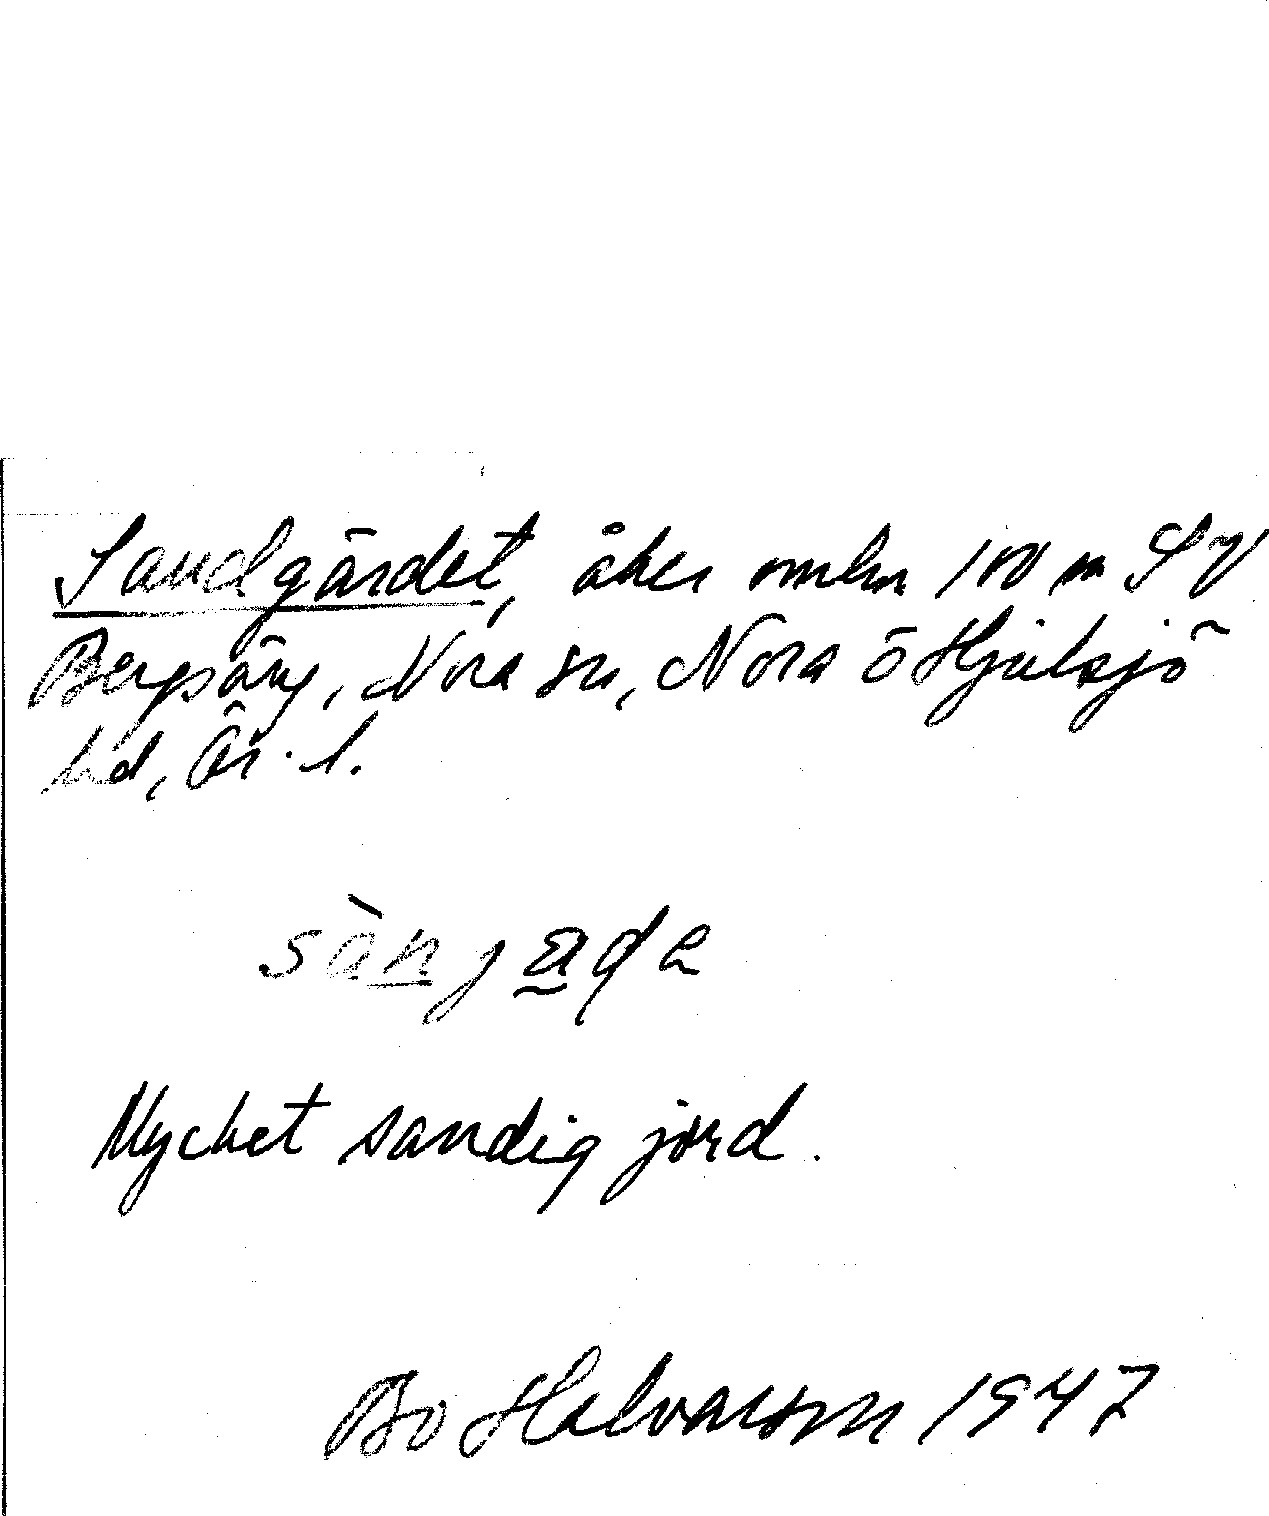 Sandgärdet, åker omkr 100 m SV
Bergsäng, Nora sn, Nora o Hjulsjö
hd, Ör. l.
Mycket sandig jord.
Bo Halvarson 1947